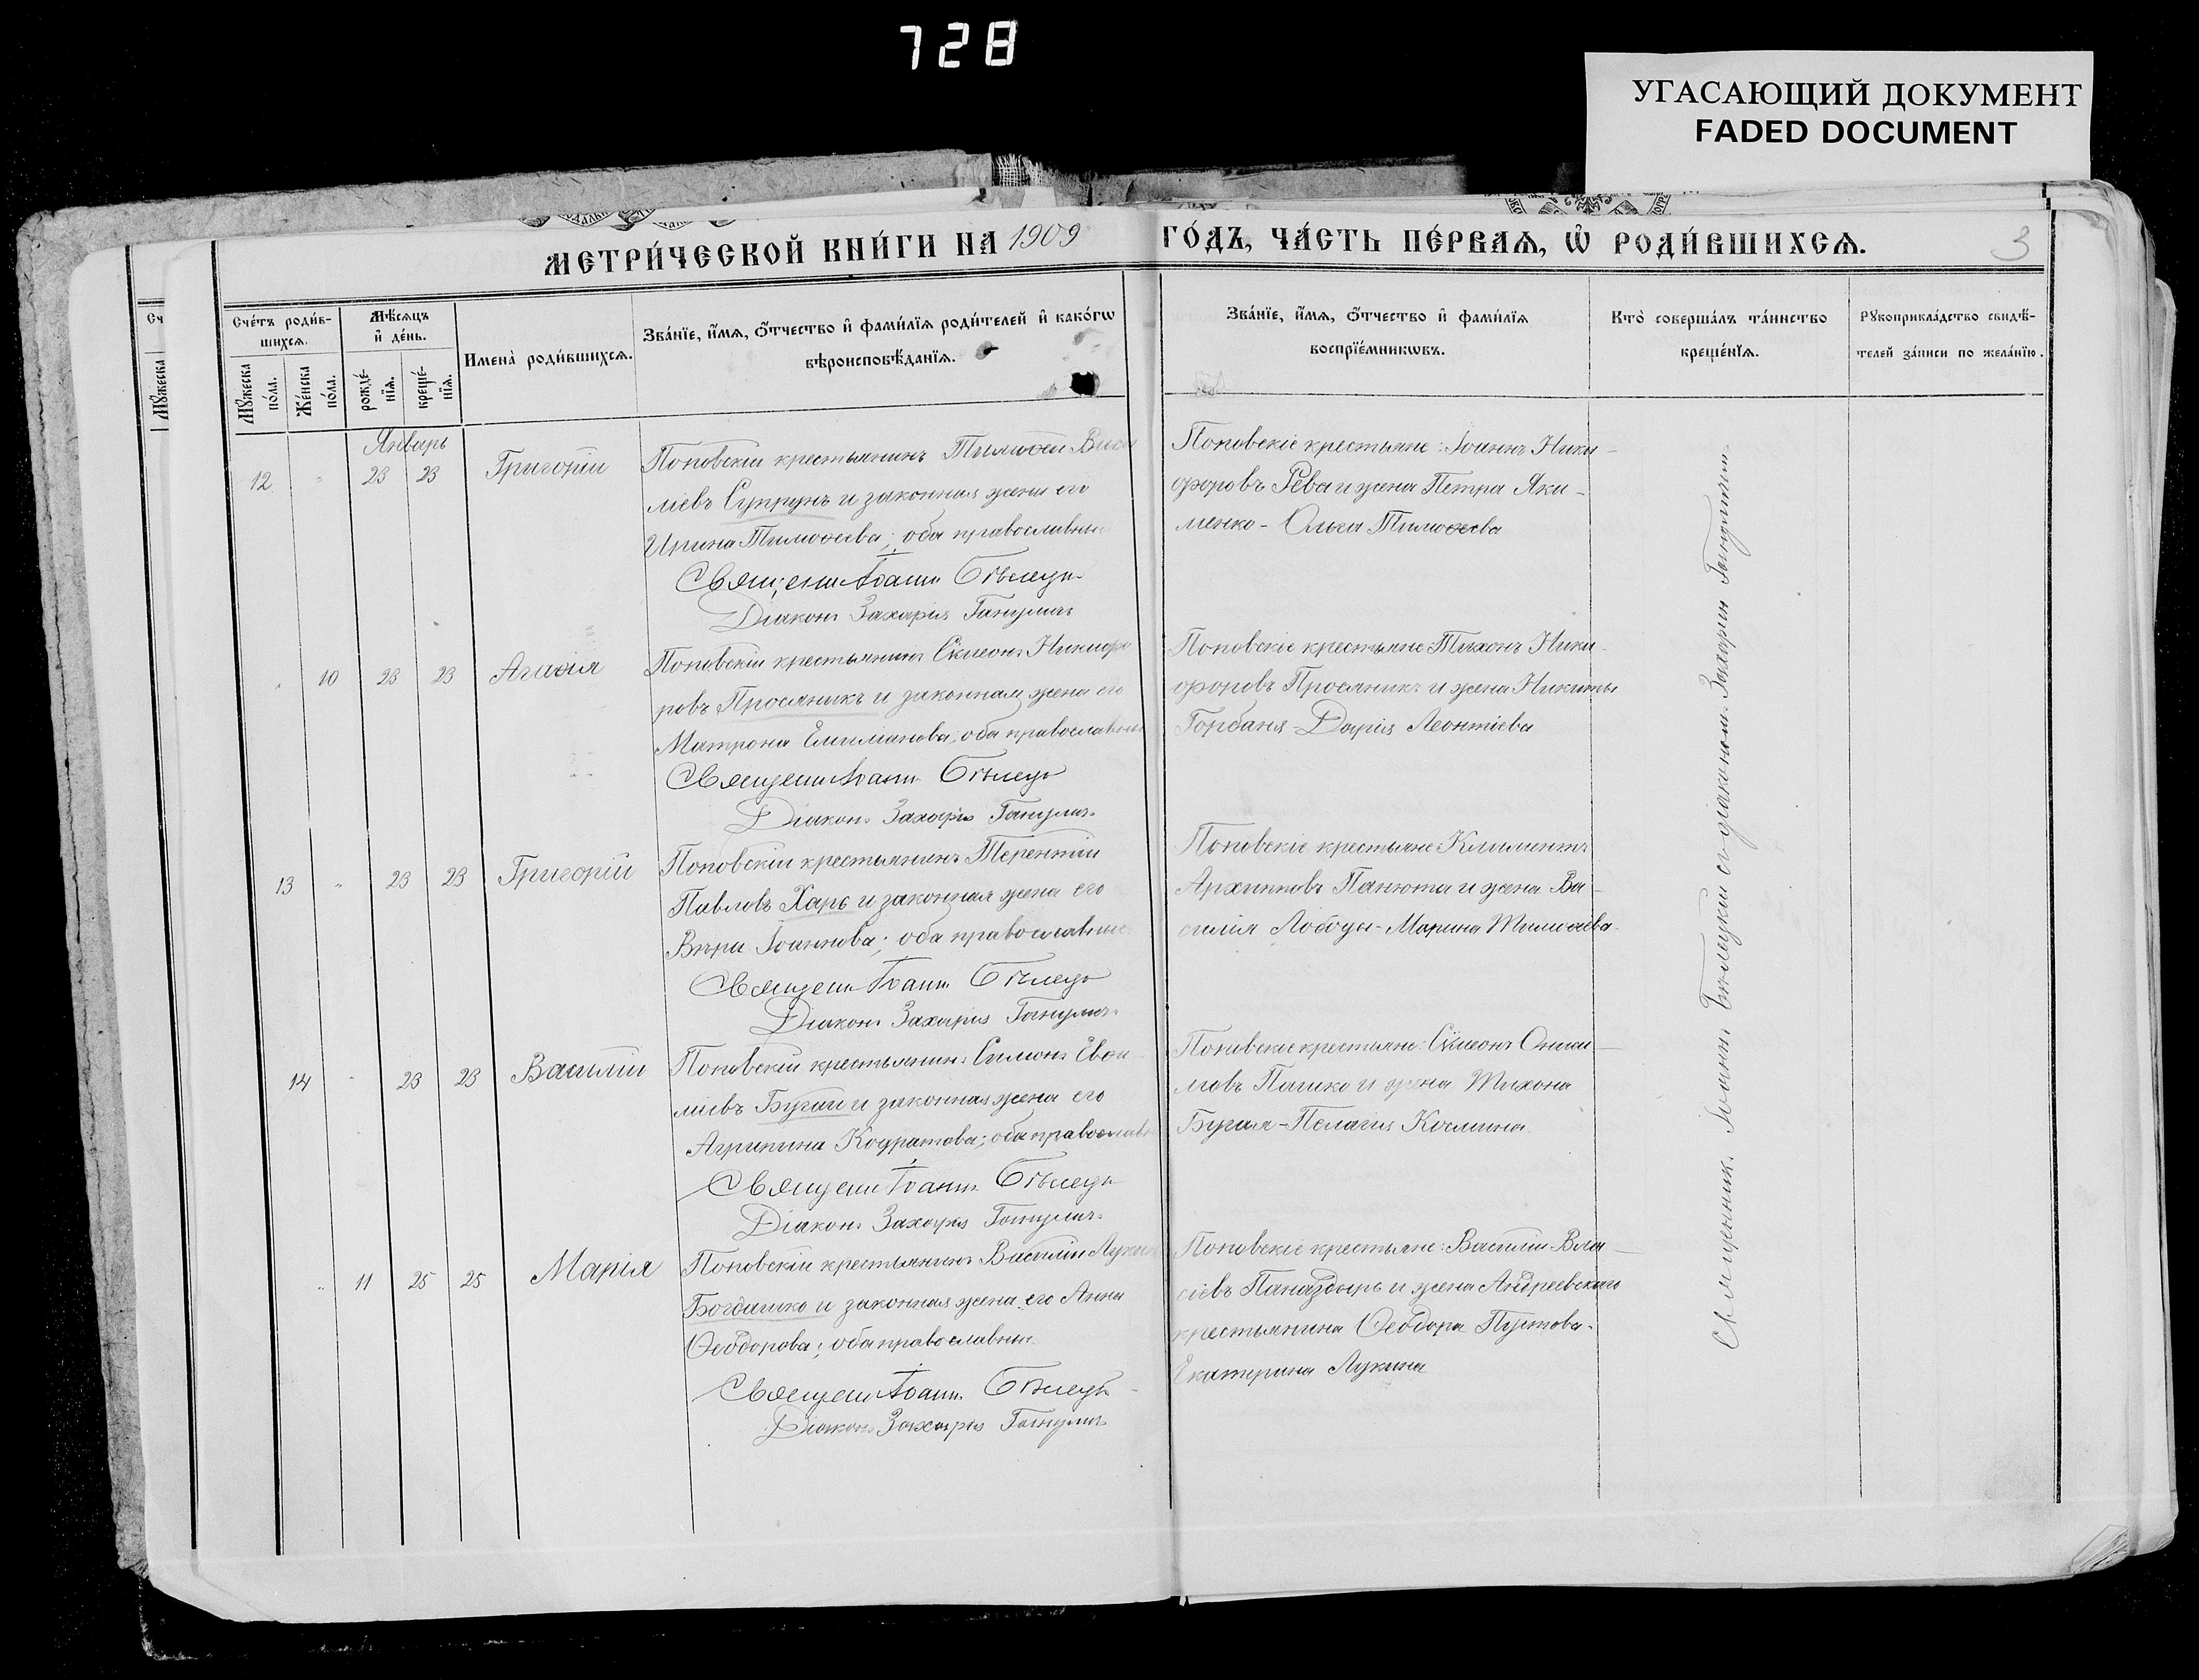 728
УГАСАЮЩИЙ ДОКУМЕНТ
FADED DOCUMENT
МЕТРИ́ЧЕСКОЙ КНИ́ГИ НА 1909 ГО́ДЪ, ЧА́СТЬ ПЕ́РВАѦ, Ѡ҆ РОДИ́ВШИХСѦ.
3
Сче́тъ роди́в-
шихсѧ.
Мꙋ́жеска
по́ла.
Же́нска
по́ла.
Мѣ́сѧцъ
и҆ де́нь.
рожде́-
нїѧ.
креще́-
нїѧ.
Имена̀ роди́вшихсѧ.
Зва́нїе, и҆́мѧ, ѻ҆́тчество и҆ фами́лїѧ роди́телей и҆ како́гѡ
вѣроисповѣ́данїѧ.
Зва́нїе, и҆́мѧ, ѻ҆́тчество и҆ фами́лїѧ
воспрїе́мникѡвъ.
Кто̀ соверша́лъ та́инство
креще́нїѧ.
Рꙋкоприкла́дство свидѣ́-
телей за́писи по жела́нїю.
Сч
Мꙋ́жеска
Январь
12 23 23 Григорій
Поповскій крестьянинъ Тимоѳей Васи
ліевъ Супрунъ и законная жена его
Ирина Тимоѳеева; оба православные
Священн Іоаннъ Бѣлецк
Діаконъ Захарія Ганулич
Поповскіе крестьяне: Іоаннъ Ники-
форовъ Рева и жена Петра Яки-
менко - Ольга Тимоѳеева
10 23 23 Агаѳія
Поповскій крестьянинъ Сѵмеонъ Никифо
ровъ Просяникъ и законная жена его
Матрона Емиліанова; оба православные
Священн Іоаннъ Бѣлецк
Діаконъ Захарія Ганулич
Поповскіе крестьяне Тихонъ Ники-
форовъ Просяникъ и жена Никиты
Горбаня - Дарія Леонтіева
13 23 23 Григорій
Поповскій крестьянинъ Терентій
Павловъ Харь и законная жена его
Вѣра Іоаннова; оба православные
Священн Іоаннъ Бѣлецк
Діаконъ Захарія Ганулич
Поповскіе крестьяне Климентъ
Архиповъ Панюта и жена Ва-
силія Лободы - Марина Тимоѳеева
14 23 23 Василій
Поповскій крестьянинъ Симонъ
ліевъ Бугай и законная жена его
Агрипина Кодратова; оба православн
Священн Іоаннъ Бѣлецк
Діаконъ Захарія Ганулич
Поповскіе крестьяне: Сѵмеонъ Ониси-
мовъ Пашко и жена Тихона
Бугая - Пелагія Космина
11 25 25 Марія
Поповскій крестьянинъ Василій Лукин
Богдашко и законная жена его Анна
Ѳеодорова; оба православные
Священн Іоаннъ Бѣлецк
Діаконъ Захарія Ганулич
Поповскіе крестьяне: Василій Вла-
сіевъ Паназдырь и жена Андреевскаго
крестьянина Ѳеодора Пустова-
Екатерина Лукина
Священник Іоаннъ Бѣлецкій съ діаконом Захарія Ганулічем